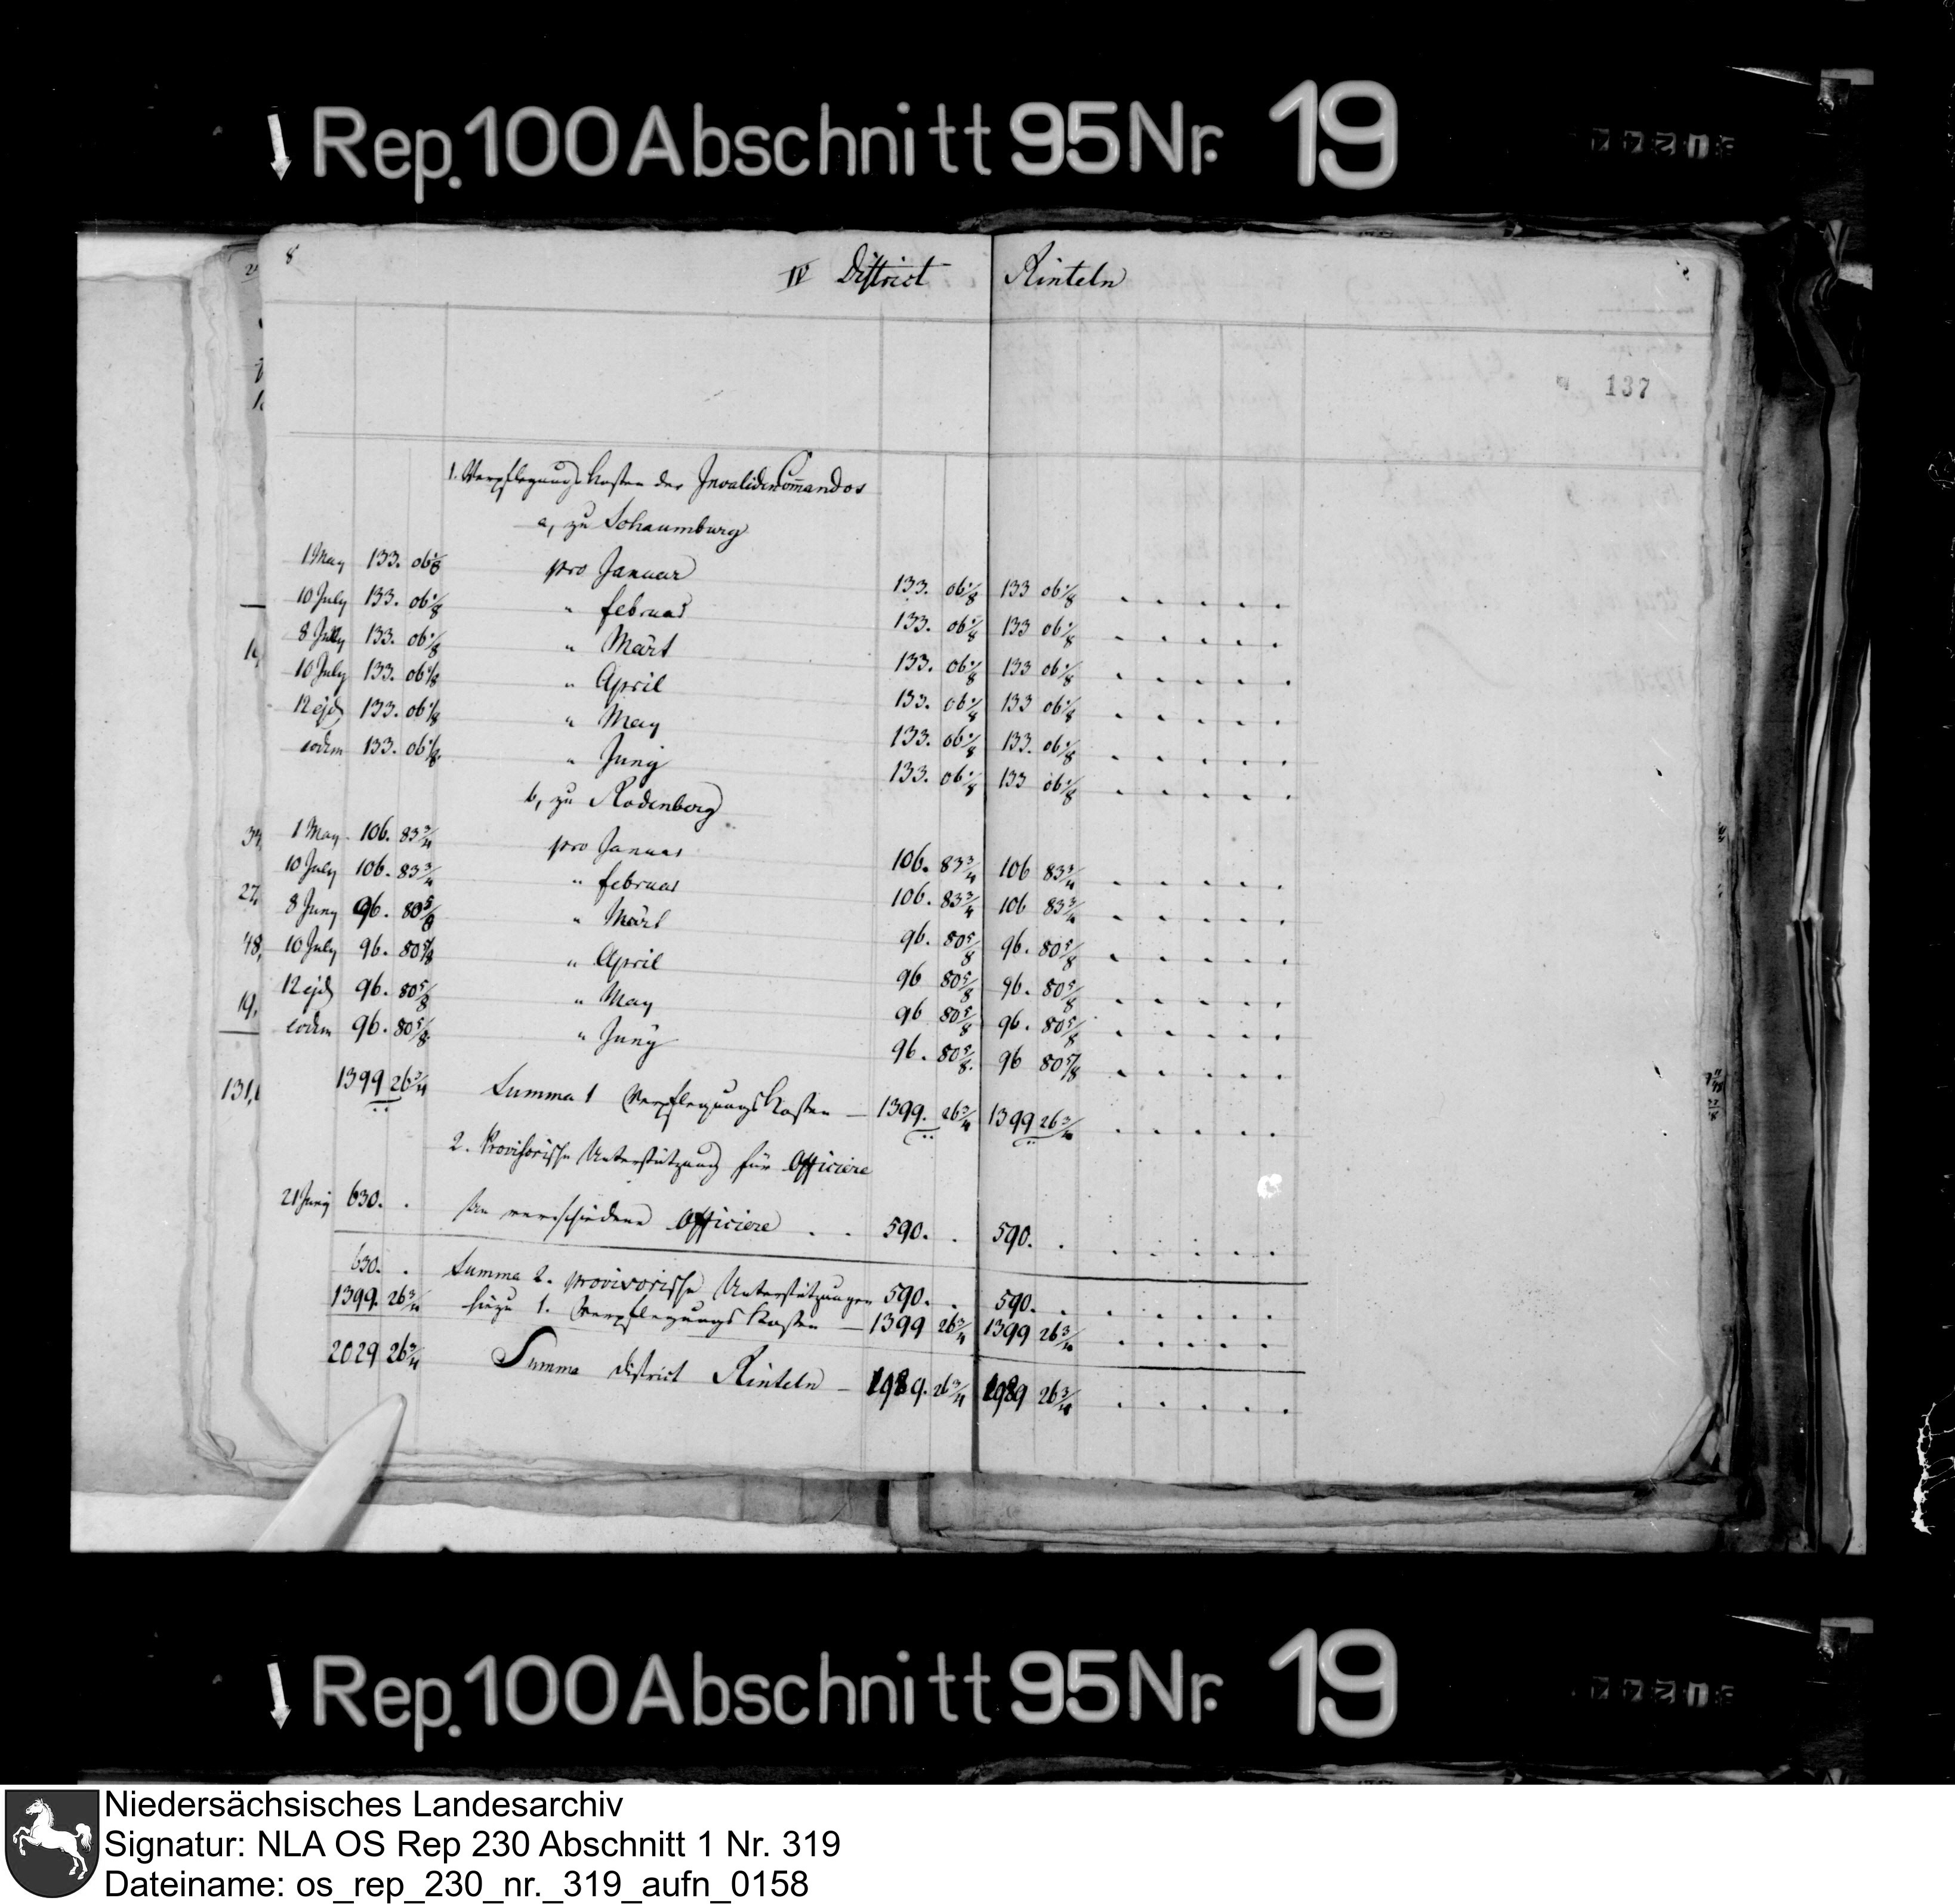 Rep. 100 Abschnitt 95 Nr. 19
8
IV District Rinteln
137
1. Verpflegungs Kosten der Invaliden Commandos
a, zu Schaumburg
1 May 133. 06 1/8 pro Januar 133. 06 1/8 133 06 1/8 . . . . .
10 July 133. 06 1/8 " Februar 133. 06 1/8 133 06 1/8 . . . . .
8 July 133. 06 1/8 " Märt 133. 06 1/8 133 06 1/8 . . . . .
10 July 133. 06 1/8 " April 133. 06 1/8 133 06 1/8 . . . . .
12 ejd 133. 06 1/8 " May 133. 06 1/8 133. 06 1/8 . . . . .
eodem 133. 06 1/8 " Juny 133. 06 1/8 133 06 1/8 . . . . .
b, zu Rodenberg
1 May. 106. 83 3/4 pro Januar 106. 83 3/4 106 83 3/4 . . . . .
10 July 106. 83 3/4 " Februar 106. 83 3/4 106 83 3/4 . . . . .
8 Juny 96. 80 5/8 " Märt 96. 80 5/8 96. 80 5/8 . . . . .
10 July 96. 80 5/8 " April 96 80 5/8 96. 80 5/8 . . . . .
12 ejd 96. 80 5/8 " May 96 80 5/8 96. 80 5/8 . . . . .
eodem 96. 80 5/8 " Juny 96. 80 5/8 96 80 5/8 . . . . .
1399 26 3/4 Summa 1 Verpflegungs Kosten — 1399. 26 3/4 1399 26 3/4 . . . . .
2. Provisorische Unterstützung für Officiere
21 Juny 630. . An verschiedene Officiere . . 590. . 590. . . . . . .
630. . Summa 2. provisorische Unterstützungen 590. . 590. . . . . . .
1399. 26 3/4 hiezu 1. Verpflegungs Kosten — 1399 26 3/4 1399 26 3/4 . . . . .
2029 26 3/4 Summa District Rinteln — 1989. 26 3/4 1989 26 3/4 . . . . .
Rep. 100 Abschnitt 95 Nr. 19
Niedersächsisches Landesarchiv
Signatur: NLA OS Rep 230 Abschnitt 1 Nr. 319
Dateiname: os_rep_230_nr._319_aufn_0158